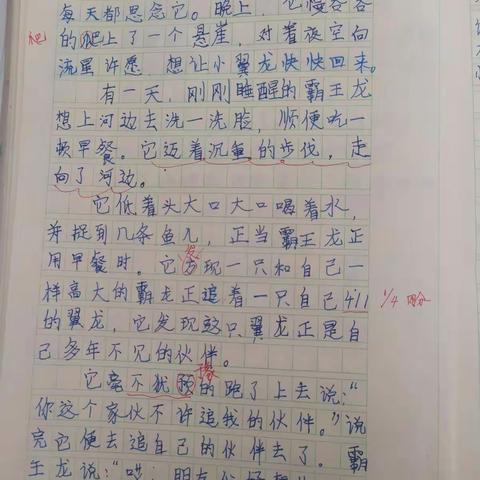 每天都思念它。晚上，它慢吞吞
爬
的爬上了一个悬崖，对着夜空向
流星许愿，想让小翼龙快快回来。
有一天，刚刚睡醒的霸王龙
想上河边去洗一洗脸，顺便吃一
顿早餐。它迈着沉重的步伐，走
向了河边。
它低着头大口大口喝着水，
并捉到几条鱼儿，正当霸王龙正
发
用早餐时。它发现一只和自己一
样高大的霸龙正追着一只自己4/1
1/4
的翼龙，它发现这只翼龙正是自
己多年不见的伙伴。
它毫不犹预的跑了上去说：“
你这个家伙不许追我的伙伴。”说
完它便去追自己的伙伴去了。霸
王龙说：“